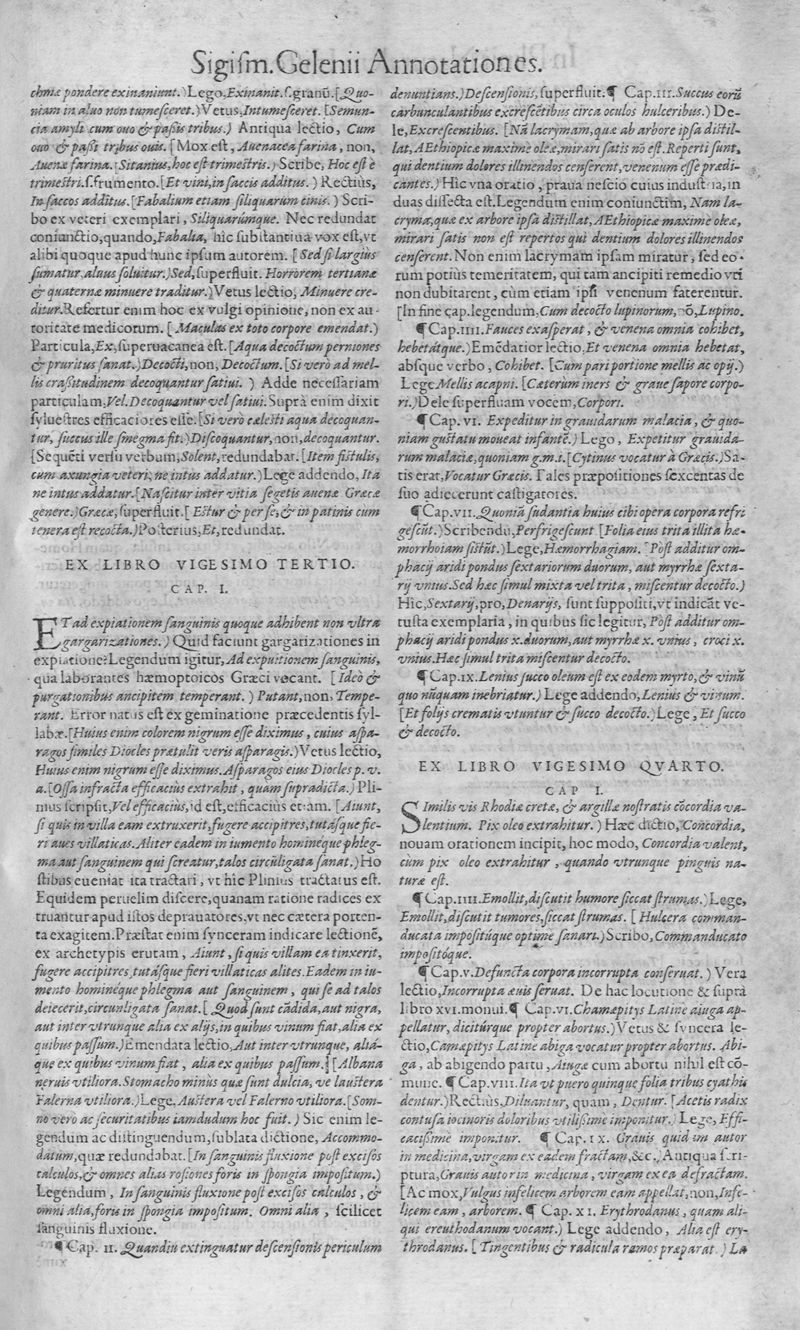 Sigiſm. Gelenii Annotationes.
chmæ pondere exinaniunt.) Lego, Exinanit. ſ. granũ. [Quo-
niam in aluo non tumeſceret.) Vetus, Intumeſceret. [Semun-
cia amyli cum ouo & paſsis tribus.) Antiqua lectio, Cum
ouo & paſsi tribus ouis. [Mox eſt, Auenacea farina, non,
Auenæ farina. [Sitanius, hoc eſt trimeſtris.) Scribe, Hoc eſt è
trimeſtri. ſ. frumento. [Et vini, in ſaccis additus.) Rectius,
In ſaccos additus. [Fabalium etiam ſiliquarum cinis.) Scri-
bo ex veteri exemplari, Siliquarúmque. Nec redundat
coniunctio, quando, Fabalia, hic ſubſtantiua vox eſt, vt
alibi quoque apud hunc ipſum autorem. [Sed ſi largius
ſumatur, aluus ſoluitur.) Sed, ſuperfluit. Horrorem tertianæ
& quaternæ minuere traditur.) Vetus lectio, Minuere cre-
ditur. Refertur enim hoc ex vulgi opinione, non ex au-
toritate medicorum. [Maculas ex toto corpore emendat.)
Particula, Ex, ſuperuacanea eſt. [Aqua decoctum perniones
& pruritus ſanat.) Decocti, non, Decoctum. [Si verò ad mel-
lis craſsitudinem decoquantur ſatiui.) Adde neceſſariam
particulam, Vel. Decoquantur vel ſatiui. Suprà enim dixit
ſylueſtres efficaciores eſſe. [Si verò cæleſti aqua decoquan-
tur, ſuccus ille ſmegma fit.) Diſcoquantur, non, decoquantur.
[Sequẽti verſu verbum, Solent, redundabat. [Item fiſtulis,
cum axungia veteri, ne intus addatur.) Lege addendo, Ita
ne intus addatur. [Naſcitur inter vitia ſegetis auenæ Græcæ
genere.) Græcæ, ſuperfluit. [Eſtur & per ſe, & in patinis cum
tenera eſt recocta.) Poſterius, Et, redundat.
EX LIBRO VIGESIMO TERTIO.
CAP. I.
ET ad expiationem ſanguinis quoque adhibent non vltra
gargarizationes.) Quid faciunt gargarizationes in
expiatione? Legendum igitur, Ad expuitionem ſanguinis,
qua laborantes hæmoptoicos Græci vocant. [Ideò &
purgationibus ancipitem temperant.) Putant, non, Tempe-
rant. Error natus eſt ex geminatione præcedentis ſyl-
labæ. [Huius enim colorem nigrum eſſe diximus, cuius aſpa-
ragos ſimiles Diocles prætulit veris aſparagis.) Vetus lectio,
Huius enim nigrum eſſe diximus. Aſparagos eius Diocles p. v.
a. [Oſſa infracta efficacius extrahit, quam ſupradicta.) Pli-
nius ſcripſit, Vel efficacius, id eſt, efficacius etiam. [Aiunt,
ſi quis in villa eam extruxerit, fugere accipitres, tutáſque fie-
ri aues villaticas. Aliter eadem in iumento homineque phleg-
ma aut ſanguinem qui ſcreatur, talos circũligata ſanat.) Ho
ſtibus eueniat ita tractari, vt hic Plinius tractatus eſt.
Equidem peruelim diſcere, quanam ratione radices ex
truantur apud iſtos deprauatores, vt nec cætera porten-
ta exagitem. Præſtat enim ſynceram indicare lectionẽ,
ex archetypis erutam, Aiunt, ſi quis villam ea tinxerit,
fugere accipitres, tutáſque fieri villaticas alites. Eadem in iu-
mento homineque phlegma aut ſanguinem, qui ſe ad talos
deiecerit, circunligata ſanat. [Quod ſunt cãdida, aut nigra,
aut inter vtrunque alia ex alijs, in quibus vinum fiat, alia ex
quibus paſſum.) Emendata lectio, Aut inter vtrunque, aliá-
que ex quibus vinum fiat, alia ex quibus paſſum. [Albana
neruis vtiliora. Stomacho minùs quæ ſunt dulcia, ve lauſtera
Falerna vtiliora.) Lege, Auſtera vel Falerno vtiliora. [Som-
no vero ac ſecuritatibus iamdudum hoc fuit.) Sic enim le-
gendum ac diſtinguendum, ſublata dictione, Accommo-
datum, quæ redundabat. [In ſanguinis fluxione poſt exciſos
calculos, & omnes alias roſiones foris in ſpongia impoſitum.)
Legendum, In ſanguinis fluxione poſt exciſos calculos, &
omni alia, foris in ſpongia impoſitum. Omni alia, ſcilicet
ſanguinis fluxione.
¶ Cap. II. Quandiu extinguatur deſcenſionis periculum
denuntians.) Deſcenſionis, ſuperfluit. ¶ Cap. III. Succus eorũ
carbunculantibus excreſcẽtibus circa oculos hulceribus.) De-
le, Excreſcentibus. [Nã lacrymam, quæ ab arbore ipſa diſtil-
lat, AEthiopicæ maxime oleæ, mirari ſatis nõ eſt. Reperti ſunt,
qui dentium dolores illinendos cenſerent, venenum eſſe prædi-
cantes.) Hic vna oratio, praua neſcio cuius induſtria, in
duas diſſecta eſt. Legendum enim coniunctim, Nam la-
crymæ, quæ ex arbore ipſa diſtillat, AEthiopicæ maxime oleæ,
mirari ſatis non eſt repertos qui dentium dolores illinendos
cenſerent. Non enim lacrymam ipſam miratur, ſed eo-
rum potiùs temeritatem, qui tam ancipiti remedio vti
non dubitarent, cùm etiam ipſi venenum faterentur.
[In fine cap. legendum, Cum decocto lupinorum, nõ, Lupino.
¶ Cap. IIII. Fauces exaſperat, & venena omnia cohibet,
hebetátque.) Emẽdatior lectio, Et venena omnia hebetat,
abſque verbo, Cohibet. [Cum pari portione mellis ac opij.)
Lege Mellis acapni. [Cæterum iners & graue ſapore corpo-
ri.) Dele ſuperfluam vocem, Corpori.
¶ Cap. VI. Expeditur in grauidarum malacia, & quo-
niam guſtatu moueat infantẽ.) Lego, Expetitur grauida-
rum malaciæ, quoniam g. m. i. [Cytinus vocatur à Græcis.) Sa-
tis erat, Vocatur Græcis. Tales præpoſitiones ſexcentas de
ſuo adiecerunt caſtigatores.
¶ Cap. VII. Quoniũ ſudantia huius cibi opera corpora refri
geſcũt.) Scribendũ, Perfrigeſcunt [Folia eius trita illita hæ-
morrhoiam ſiſtũt.) Lege, Hæmorrhagiam. [Poſt additur om-
phacij aridi pondus ſextariorum duorum, aut myrrhæ ſexta-
rij vntus. Sed hæc ſimul mixta vel trita, miſcentur decocto.)
Hic, Sextarij, pro, Denarijs, ſunt ſuppoſiti, vt indicãt ve-
tuſta exemplaria, in quibus ſic legitur, Poſt additur om-
phacij aridi pondus x. duorum, aut myrrhæ x. vnius, croci x.
vnius. Hæc ſimul trita miſcentur decocto.
¶ Cap. IX. Lenius ſucco oleum eſt ex eodem myrto, & vinũ
quo nũquam inebriatur.) Lege addendo, Lenius & vinum.
[Et folijs crematis vtuntur & ſucco decocto.) Lege, Et ſucco
& decocto.
EX LIBRO VIGESIMO QVARTO.
CAP I.
SImilis vis Rhodiæ cretæ, & argillæ noſtratis cõcordia va-
lentium. Pix oleo extrahitur.) Hæc dictio, Concordia,
nouam orationem incipit, hoc modo, Concordia valent,
cùm pix oleo extrahitur, quando vtrunque pinguis na-
turæ eſt.
¶ Cap. IIII. Emollit, diſcutit humore ſiccat ſtrumas.) Lege,
Emollit, diſcutit tumores, ſiccat ſtrumas. [Hulcera comman-
ducata impoſitúque optime ſanari.) Scribo, Commanducato
impoſitóque.
¶ Cap. V. Defuncta corpora incorrupta conſeruat.) Vera
lectio, Incorrupta æuis ſeruat. De hac locutione & ſuprà
libro XVI. monui. ¶ Cap. VI. Chamæpitys Latine aiuga ap-
pellatur, dicitúrque propter abortus.) Vetus & ſyncera le-
ctio, Camæpitys Latine abiga vocatur propter abortus. Abi-
ga, ab abigendo partu, Aiugæ cum abortu nihil eſt cõ-
mune. ¶ Cap. VIII. Ita vt puero quinque folia tribus cyathis
dentur.) Rectius, Diluantur, quam, Dentur. [Acetis radix
contuſa iocinoris doloribus vtiliſsime imponitur.) Lege, Effi-
caciſsime imponitur. ¶ Cap. IX. Grauis quidem autor
in medicina, virgam ex eadem fractam, &c.) Antiqua ſcri-
ptura, Grauis autor in medicina, virgam ex ea defractam.
[Ac mox, Vulgus infelicem arborem eam appellat, non, Infe-
licem eam, arborem. ¶ Cap. XI. Erythrodanus, quam ali-
qui ereuthodanum vocant.) Lege addendo, Alia eſt ery-
throdanus. [Tingentibus & radicula ramos præparat.) La